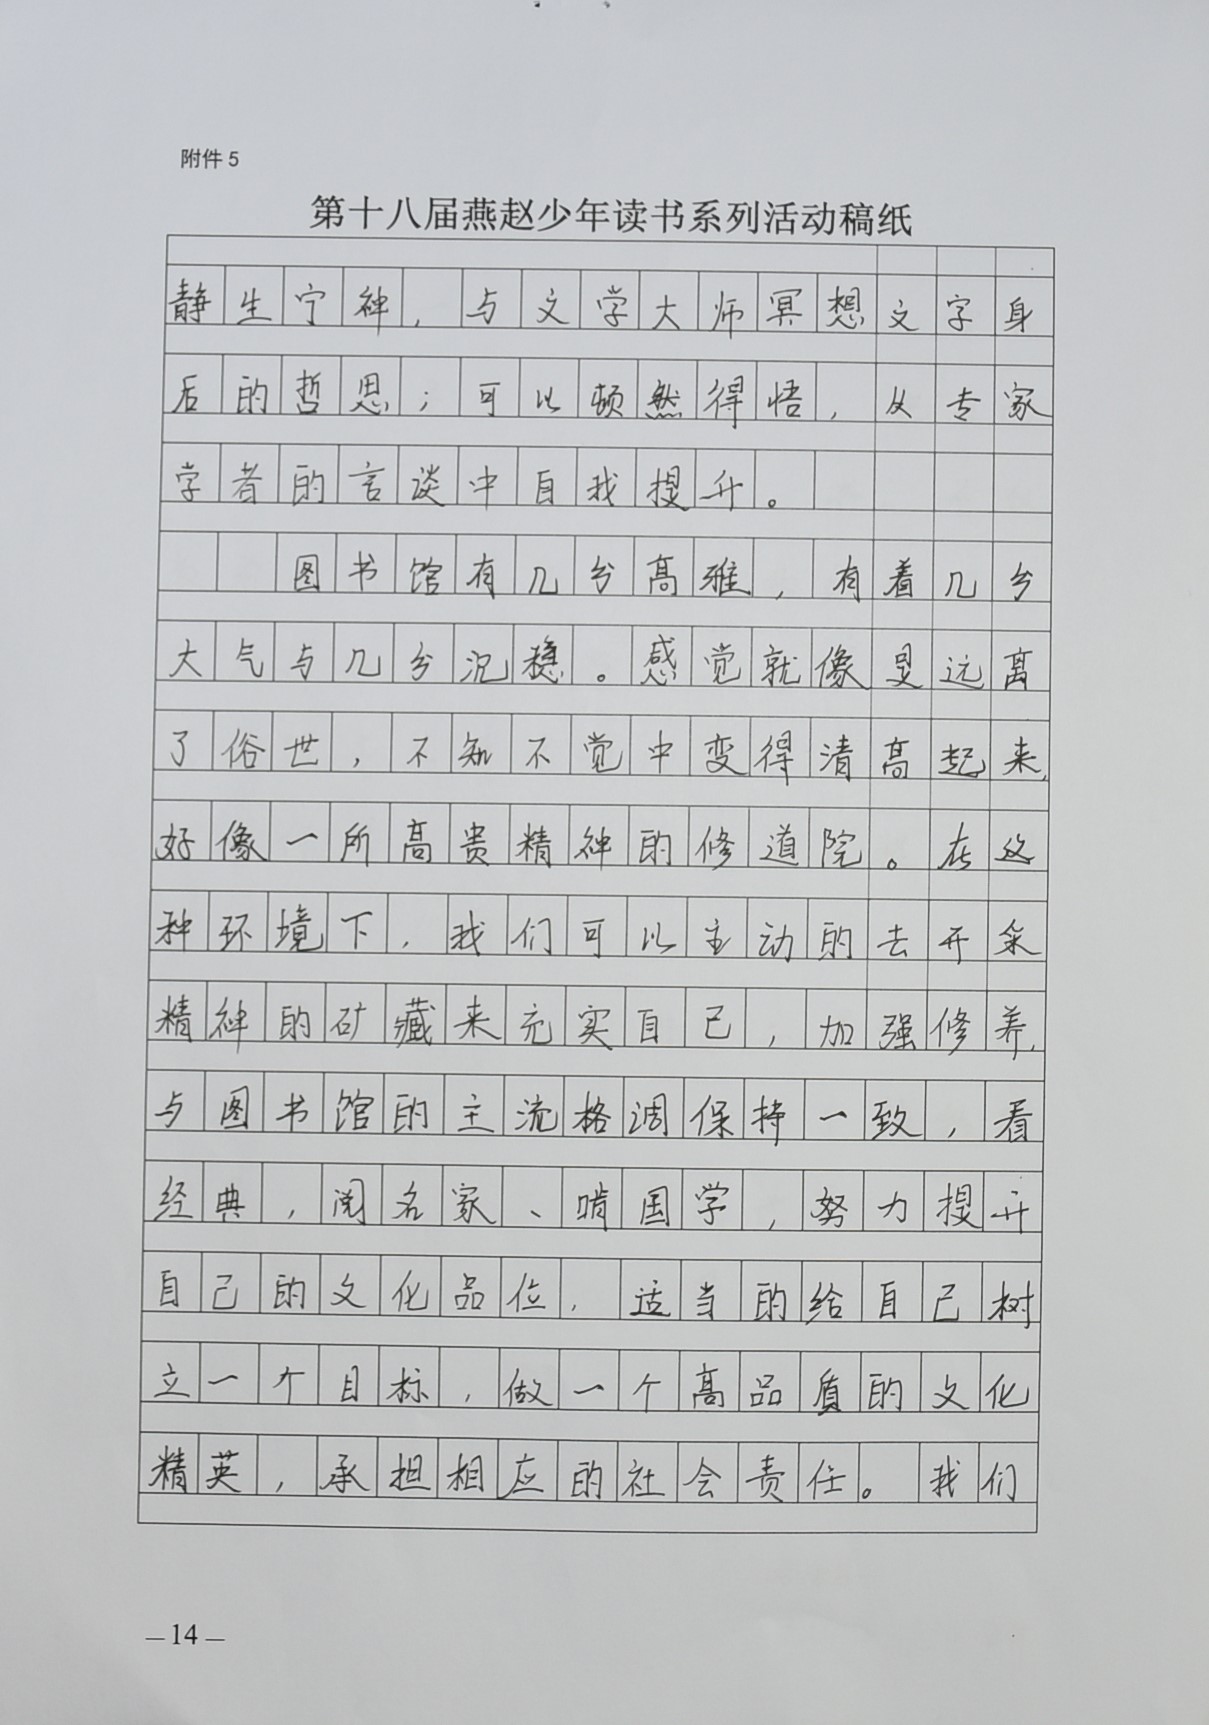 附件 5
第十八届燕赵少年读书系列活动稿纸
静生宁神，与文学大师冥想文字身
后的哲思；可以顿然得悟，从专家
学者的言谈中自我提升。
图书馆有几分高雅，有着几分
大气与几分沉稳。感觉就像是远离
了俗世，不知不觉中变得清高起来，
好像一所高贵精神的修道院。在这
种环境下，我们可以主动的去开采
精神的矿藏来充实自己，加强修养，
与图书馆的主流格调保持一致，看
经典，阅名家、啃国学，努力提升
自己的文化品位，适当的给自己树
立一个目标，做一个高品质的文化
精英，承担相应的社会责任。我们
—14—